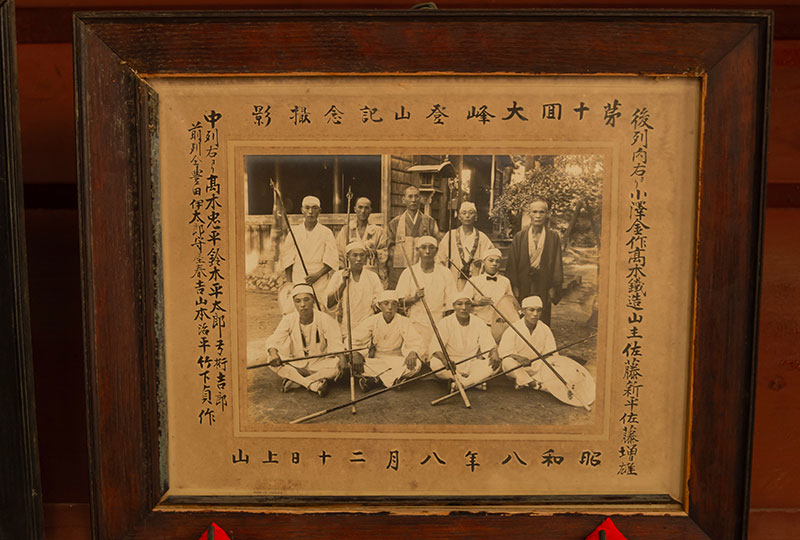 第十回大峰登山記念撮影
後列向右ヨリ小澤金作髙木鐵造山主佐藤新平佐藤増雄
中列右ヨリ髙木忠平鈴木平太郎
前列仝豊田伊太郎守屋春吉山本治平竹下貞作
昭和八年八月二十日上山